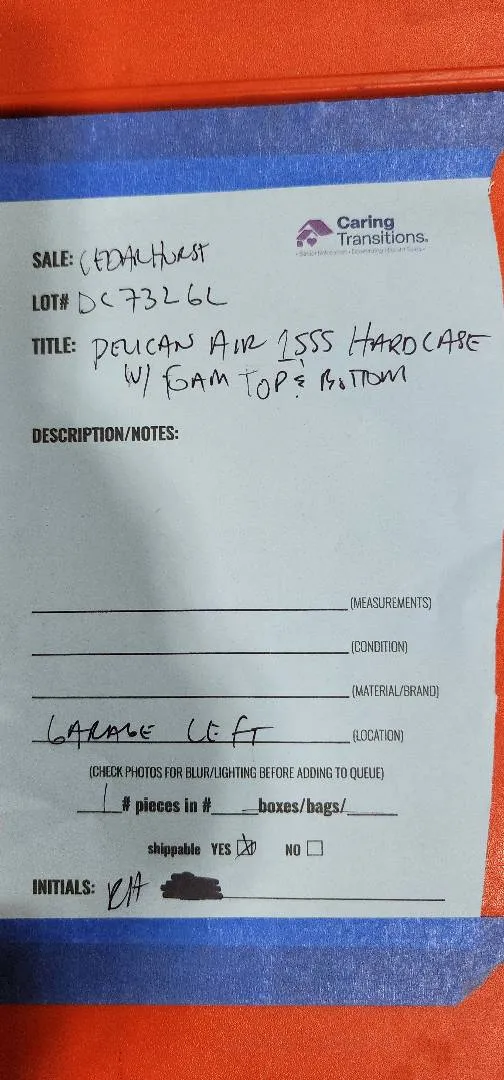 Caring
Transitions®
SALE: CEDARHURST
LOT# DC7326L
TITLE: PELICAN AIR 1555 HARDCASE
W/ FOAM TOP & BOTTOM
DESCRIPTION/NOTES:
(MEASUREMENTS)
(CONDITION)
(MATERIAL/BRAND)
GARAGE LEFT (LOCATION)
(CHECK PHOTOS FOR BLUR/LIGHTING BEFORE ADDING TO QUEUE)
1 # pieces in # boxes/bags/
shippable YES ☒ NO ☐
INITIALS: RH